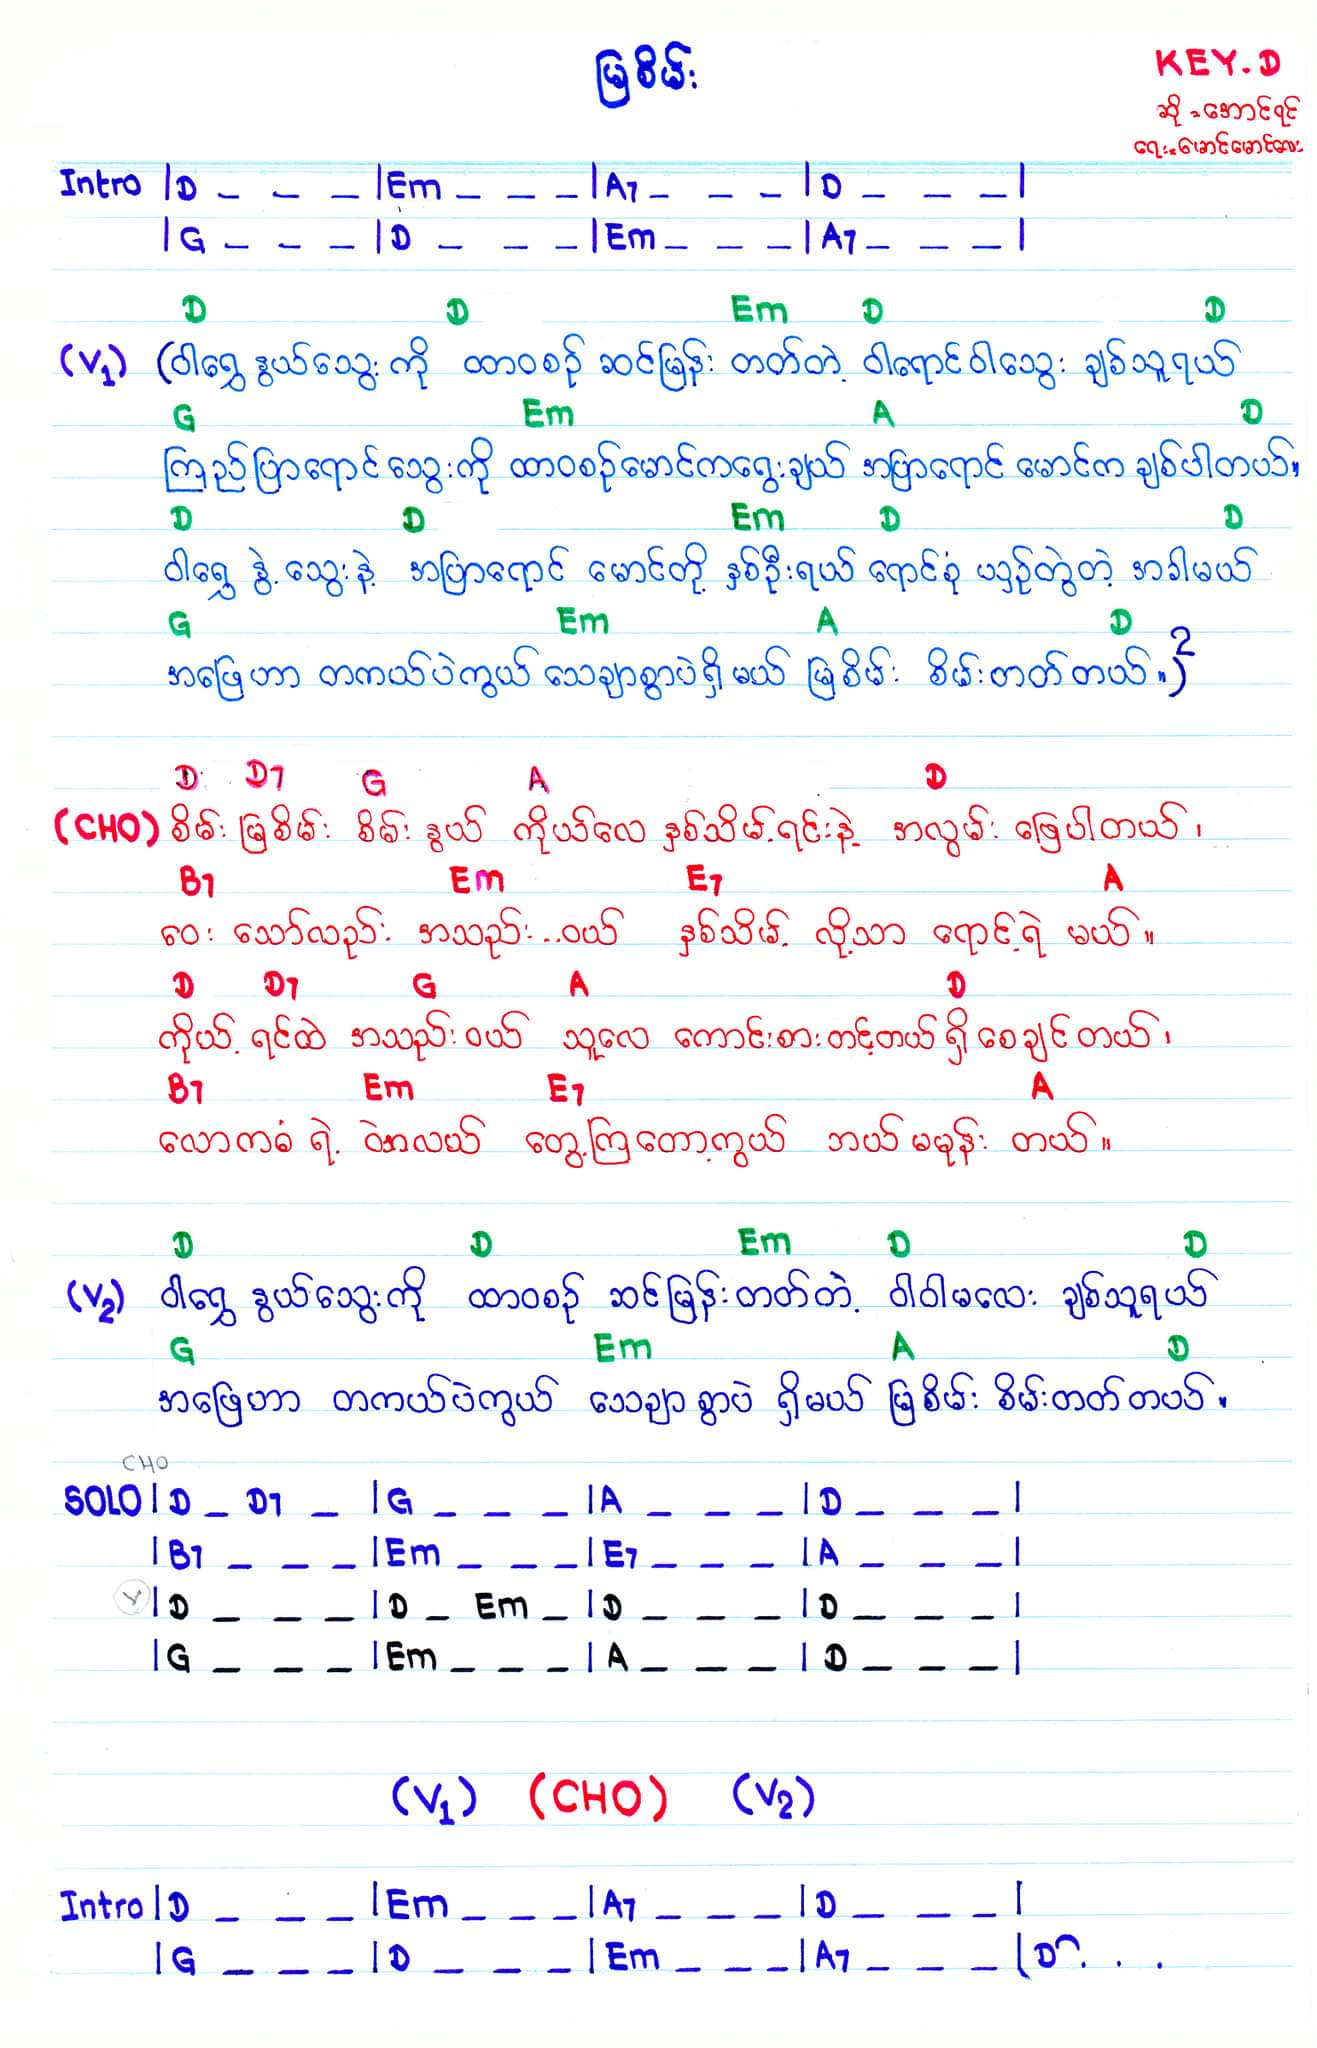 မြစိမ်း
KEY.D
ဆို - အောင်ရင်
ရေး - မောင်မောင်လေး
Intro |D _ _ _ |Em _ _ _ |A7 _ _ _ |D _ _ _ |
|G _ _ _ |D _ _ _ |Em _ _ _ |A7 _ _ _ |
D D Em D D
(V1) (ဝါရွှေ နွယ်သွေး ကို ထာဝစဉ် ဆင်မြန်း တတ်တဲ့ ဝါရောင်ဝါသွေး ချစ်သူရယ်
G Em A D
ကြည်ပြာရောင်သွေးကို ထာဝစဉ်မောင်ကရွေးချယ် အပြာရောင် မောင်က ချစ်ပါတယ်။
D D Em D D
ဝါရွှေ နွဲ့ သွေးနဲ့ အပြာရောင် မောင်တို့ နှစ်ဦးရယ် ရောင်စုံ ယှဉ်တွဲတဲ့ အခါမယ်
G Em A D
အဖြေဟာ တကယ်ပဲကွယ် သေချာစွာပဲရှိမယ် မြစိမ်း စိမ်းတတ်တယ်။)2
D D7 G A D
(CHO) စိမ်း မြစိမ်း စိမ်း နွယ် ကိုယ်လေ နှစ်သိမ့်ရင်းနဲ့ အလွမ်း ဖြေပါတယ်၊
B7 Em E7 A
ဝေး သော်လည်း အသည်း..ဝယ် နှစ်သိမ့် လို့သာ ရောင့်ရဲ မယ်။
D D7 G A D
ကိုယ့် ရင်ထဲ အသည်းဝယ် သူလေ ကောင်းစားတင့်တယ် ရှိစေချင်တယ်၊
B7 Em E7 A
လောကဓံ ရဲ့ ဝဲအလယ် တွေ့ကြတော့ကွယ် ဘယ်မမုန်း တယ်။
D D Em D D
(V2) ဝါရွှေ နွယ်သွေးကို ထာဝစဉ် ဆင်မြန်းတတ်တဲ့ ဝါဝါမလေး ချစ်သူရယ်
G Em A D
အဖြေဟာ တကယ်ပဲကွယ် သေချာစွာပဲ ရှိမယ် မြစိမ်း စိမ်းတတ်တယ်။
CHO
SOLO |D _ D7 _ |G _ _ _ |A _ _ _ |D _ _ _ |
|B7 _ _ _ |Em _ _ _ |E7 _ _ _ |A _ _ _ |
V |D _ _ _ |D _ Em _ |D _ _ _ |D _ _ _ |
|G _ _ _ |Em _ _ _ |A _ _ _ |D _ _ _ |
(V1) (CHO) (V2)
Intro |D _ _ _ |Em _ _ _ |A7 _ _ _ |D _ _ _ |
|G _ _ _ |D _ _ _ |Em _ _ _ |A7 _ _ _ |D . . .